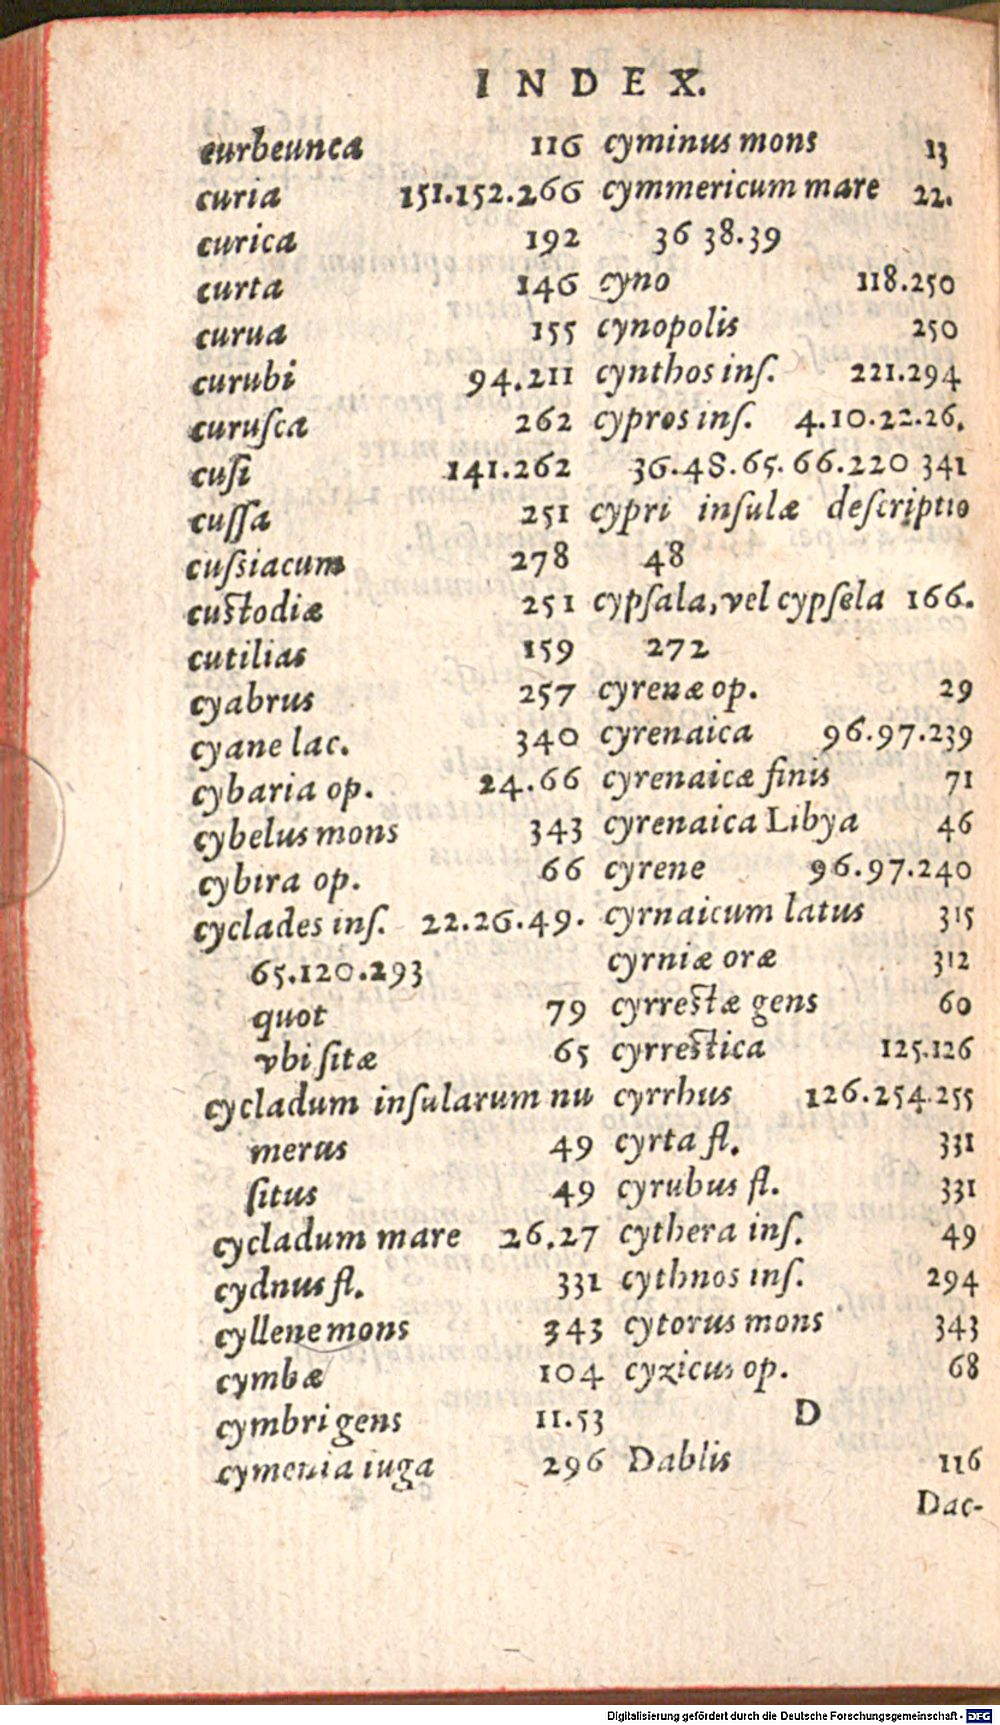 INDEX.
curbeunca 116
curia 151.152.266
curica 192
curta 146
curua 155
curubi 94.211
curuſca 262
cuſi 141.262
cuſſa 251
cuſsiacum 278
cuſtodiæ 251
cutilias 159
cyabrus 257
cyane lac. 340
cybaria op. 24.66
cybelus mons 343
cybira op. 66
cyclades inſ. 22.26.49.
65.120.293
quot 79
vbi ſitæ 65
cycladum inſularum nu
merus 49
ſitus 49
cycladum mare 26.27
cydnus fl. 331
cyllene mons 343
cymbæ 104
cymbri gens 11.53
cymenia iuga 296
cyminus mons 13
cymmericum mare 22.
36 38.39
cyno 118.250
cynopolis 250
cynthos inſ. 221.294
cypros inſ. 4.10.22.26.
36.48.65.66.220 341
cypri inſulæ deſcriptio
48
cypſala, vel cypſela 166.
272
cyrenæ op. 29
cyrenaica 96.97.239
cyrenaicæ finis 71
cyrenaica Libya 46
cyrene 96.97.240
cyrnaicum latus 315
cyrniæ oræ 312
cyrreſtæ gens 60
cyrreſtica 125.126
cyrrhus 126.254.255
cyrta fl. 331
cyrubus fl. 331
cythera inſ. 49
cythnos inſ. 294
cytorus mons 343
cyzicus op. 68
D
Dablis 116
Dac-
Digitalisierung gefördert durch die Deutsche Forschungsgemeinschaft - DFG